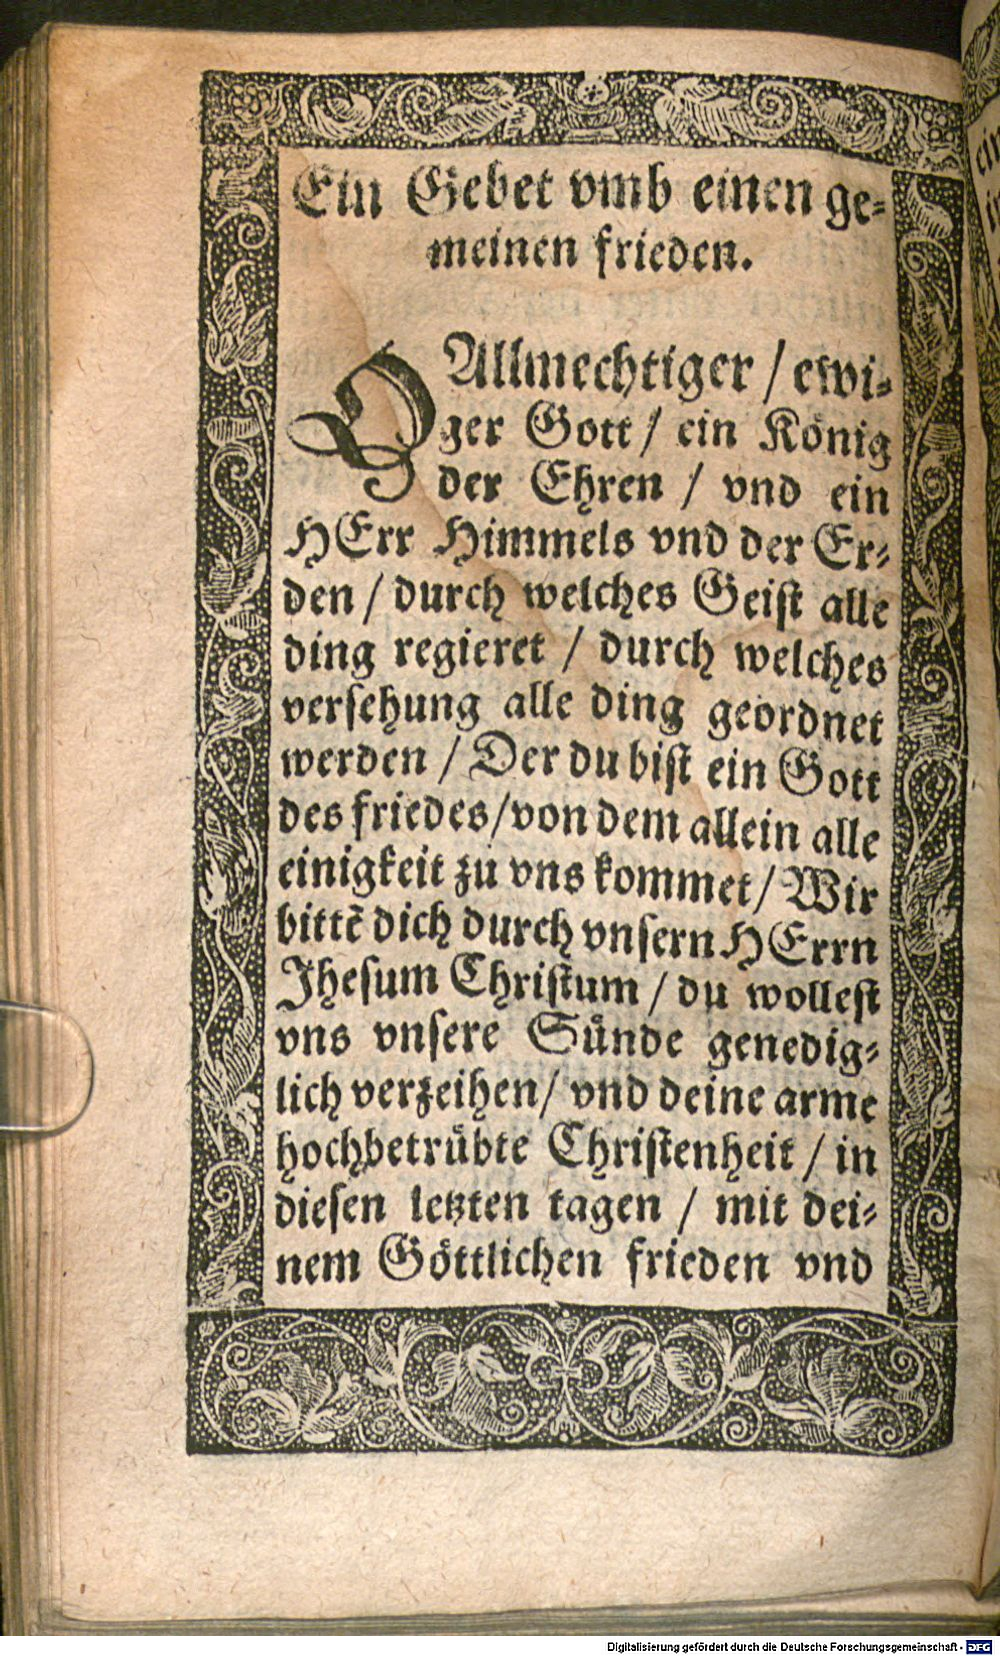 Ein Gebet vmb einen ge-
meinen frieden.
O Allmechtiger / ewi-
ger Gott / ein König
der Ehren / vnd ein
HErr Himmels vnd der Er-
den / durch welches Geist alle
ding regieret / durch welches
versehung alle ding geordnet
werden / Der du bist ein Gott
des friedes / von dem allein alle
einigkeit zu vns kommet / Wir
bittē dich durch vnsern HErrn
Jhesum Christum / du wollest
vns vnsere Sünde genedig-
lich verzeihen / vnd deine arme
hochbetrübte Christenheit / in
diesen letzten tagen / mit dei-
nem Göttlichen frieden vnd
Digitalisierung gefördert durch die Deutsche Forschungsgemeinschaft - DFG